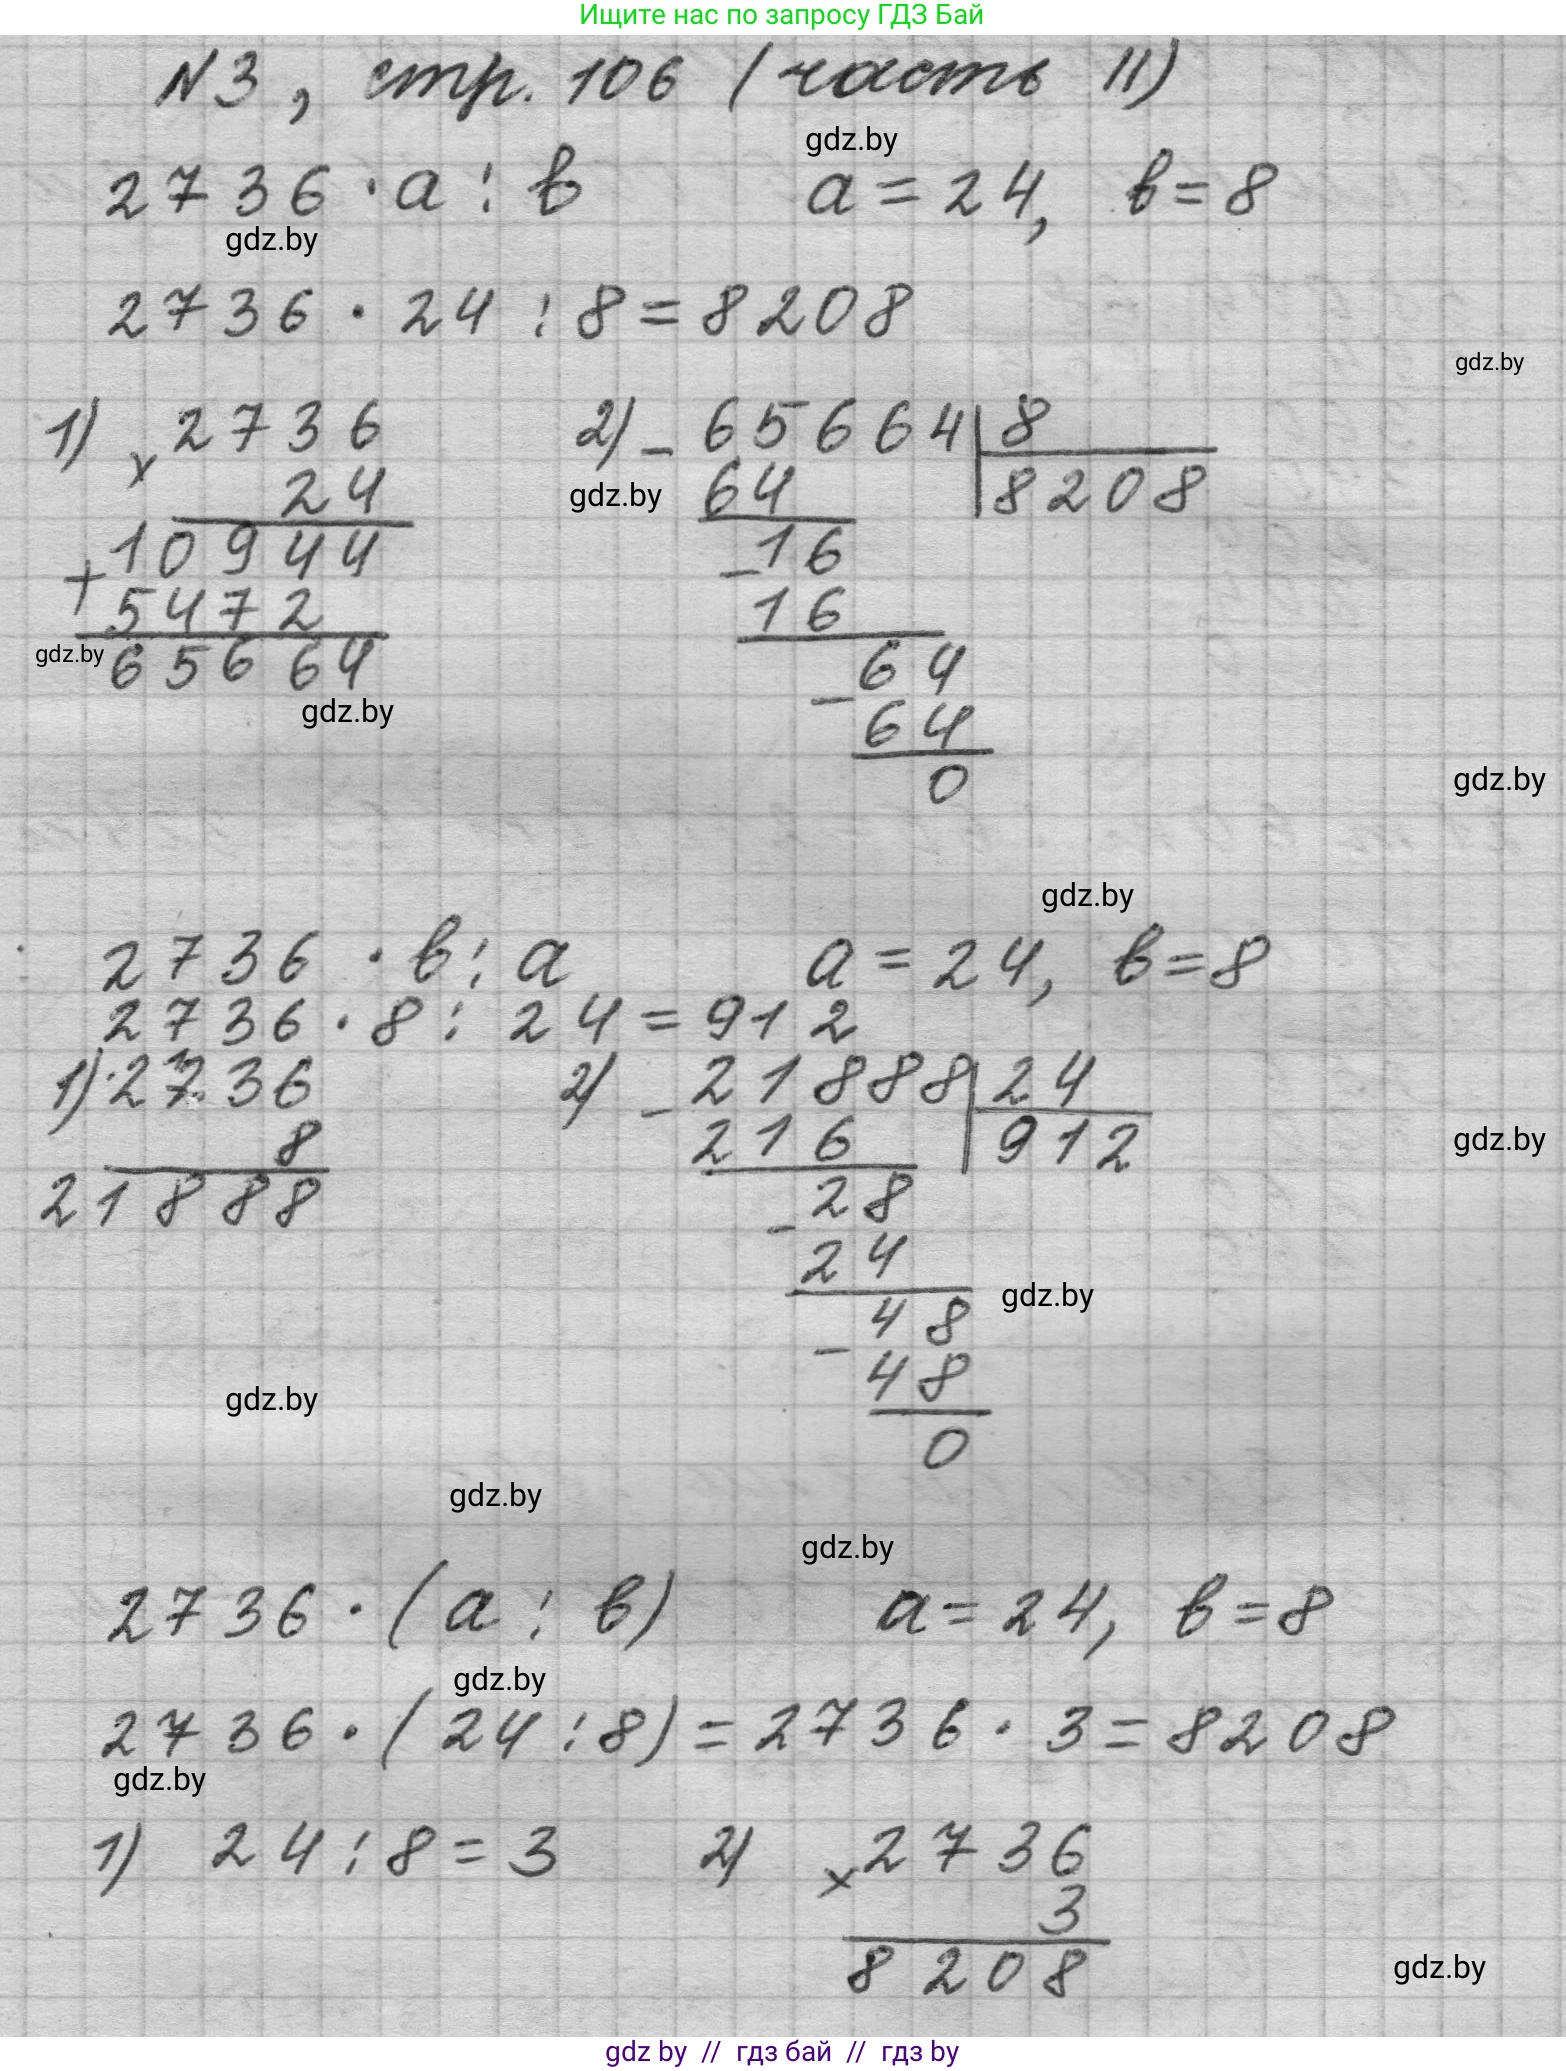 Ищите нас по запросу ГДЗ Бай
N3, стр. 106 (часть II)
gdz.by
2736 · a : b a = 24, b = 8
gdz.by
2736 · 24 : 8 = 8208
gdz.by
1) × 2736 2) - 65664 | 8
24 gdz.by 64 8208
+ 10944 - 16
5472 16
gdz.by 65664 - 64
gdz.by 64
0
gdz.by
gdz.by
2736 · b : a a = 24, b = 8
2736 · 8 : 24 = 912
1) 2736 2) - 21888 | 24
8 216 912
gdz.by
21888 - 28
24
gdz.by
- 48
48
gdz.by
0
gdz.by
gdz.by
2736 · (a : b) a = 24, b = 8
gdz.by
2736 · (24 : 8) = 2736 · 3 = 8208
gdz.by
1) 24 : 8 = 3 2) × 2736
3
8208
gdz.by
gdz by // гдз бай // гдз by